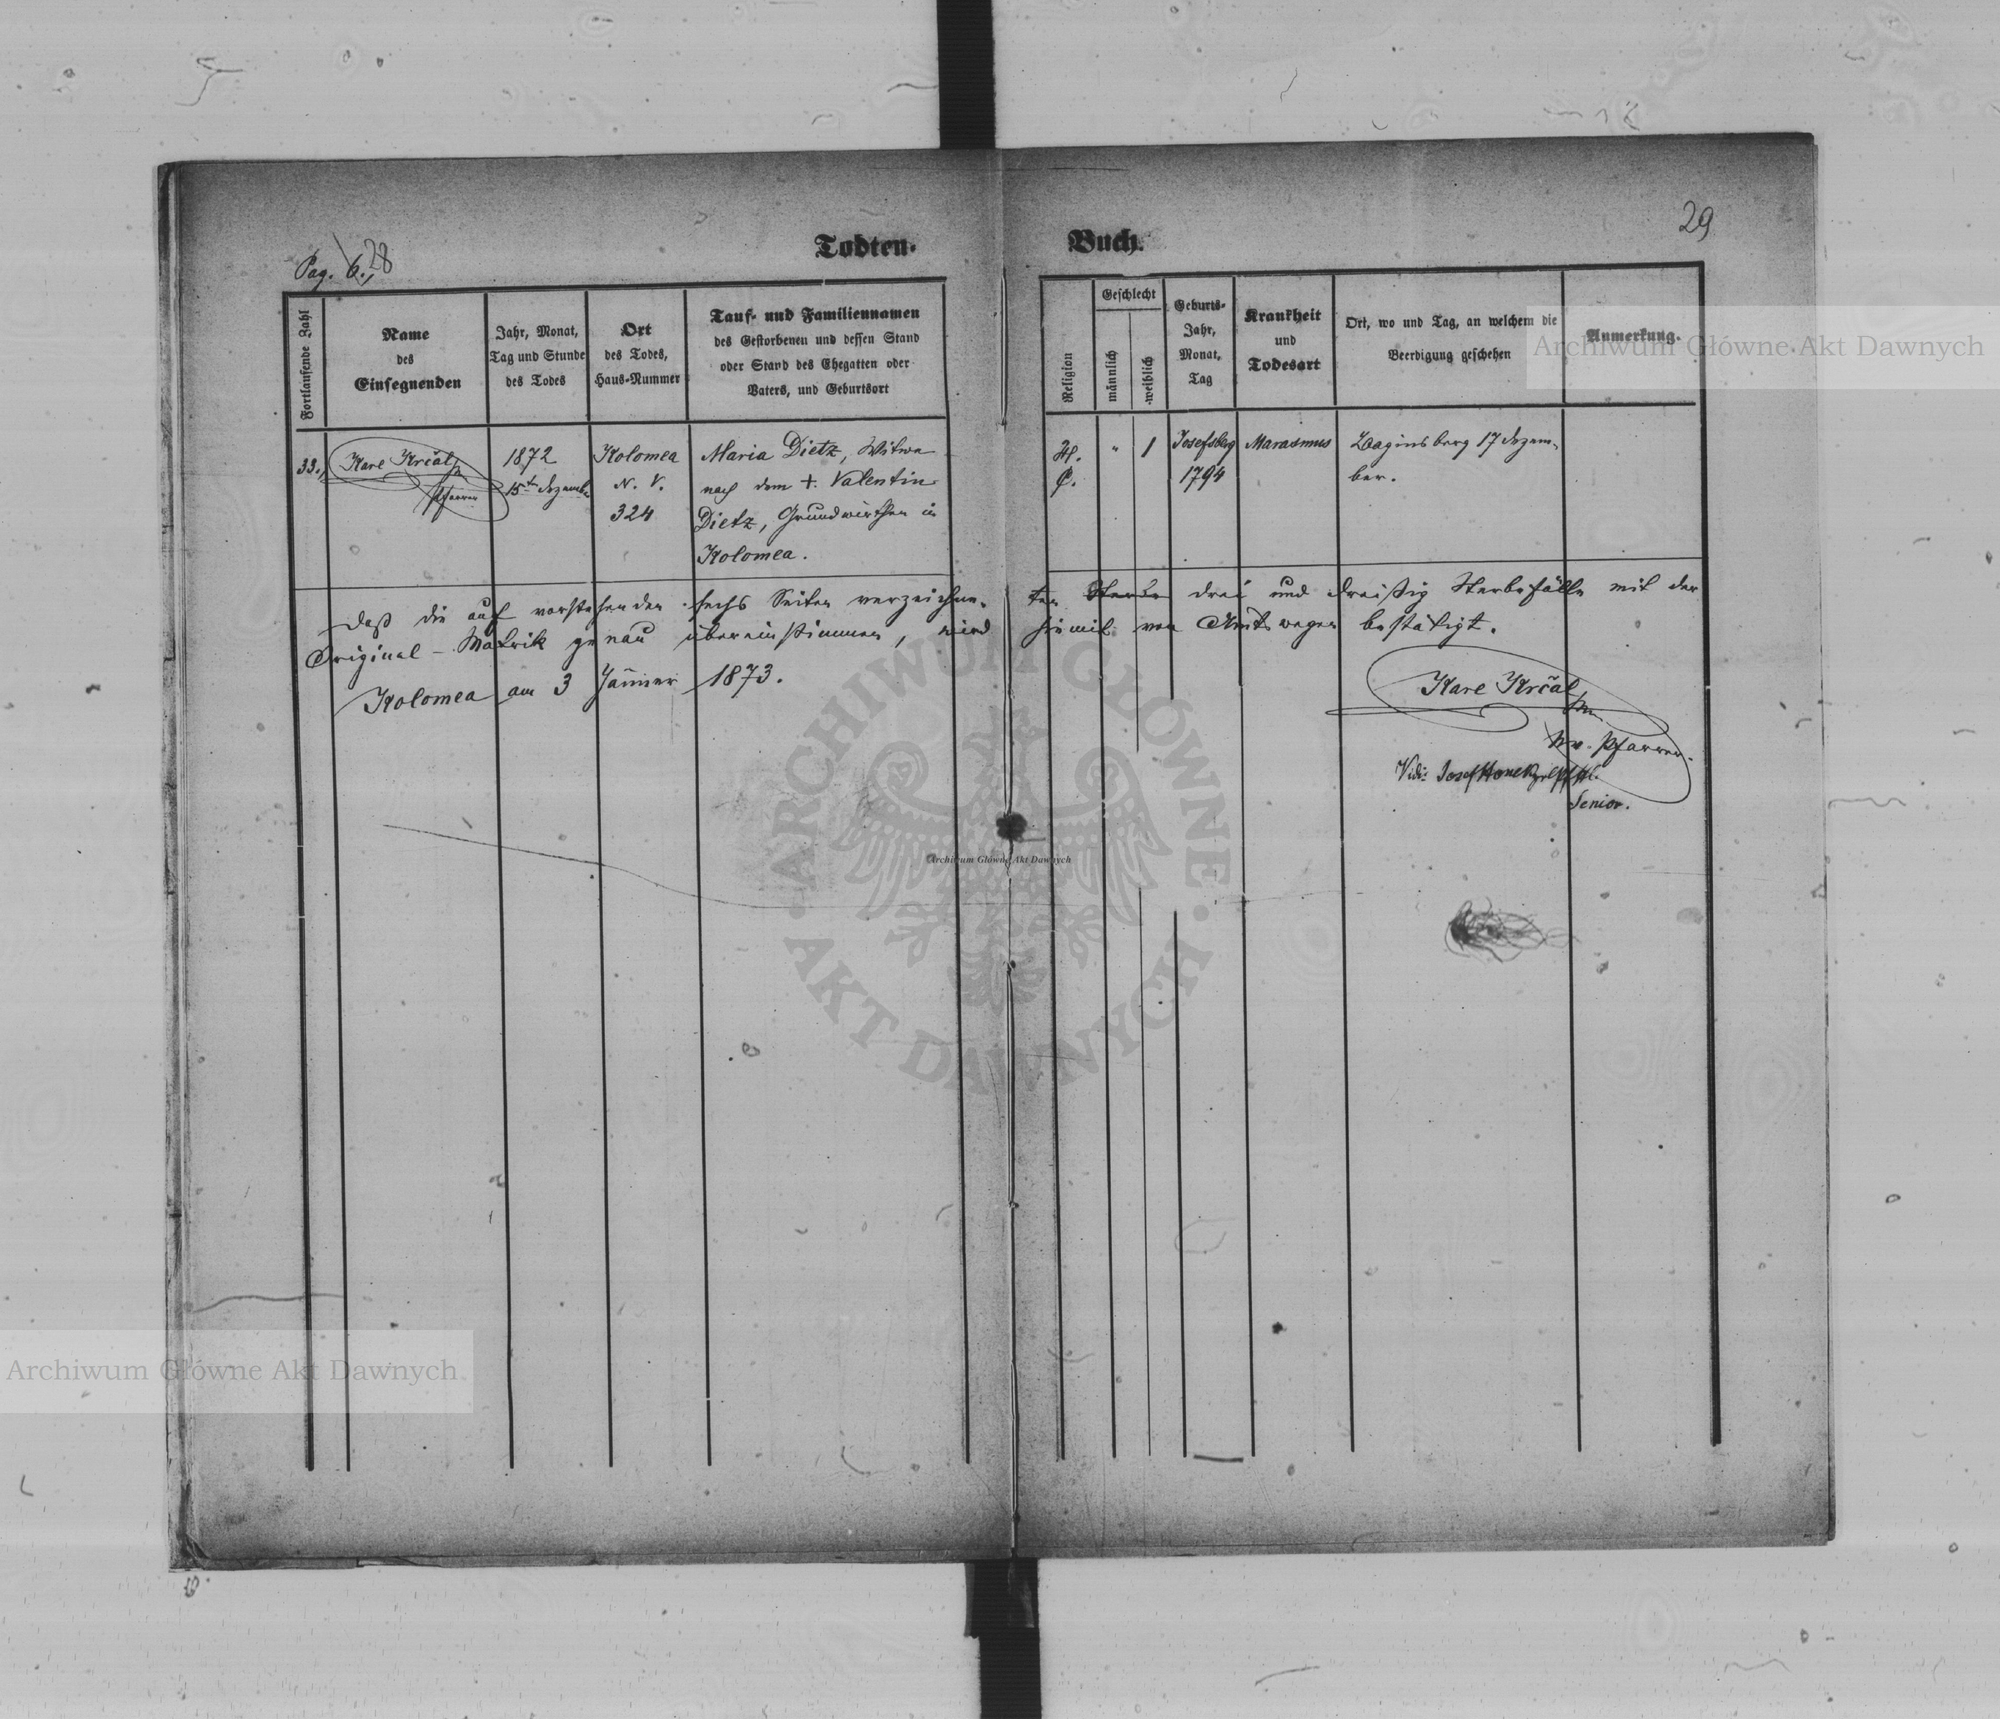 29
Todten-
Buch.
Pag. 6., 28
Fortlaufende Zahl
Name
des
Einsegnenden
Jahr, Monat,
Tag und Stunde
des Todes
Ort
des Todes,
Haus-Nummer
Tauf- und Familiennamen
des Gestorbenen und dessen Stand
oder Stand des Ehegatten oder
Vaters, und Geburtsort
Religion
Geschlecht
männlich
weiblich
Geburts-
Jahr,
Monat,
Tag
Krankheit
und
Todesart
Ort, wo und Tag, an welchem die
Beerdigung geschehen
Anmerkung.
33.,
Karl Krčal
Pfarrer
1872
15ten Dezember
Kolomea
N. V.
324
Maria Dietz, Witwe
nach dem +. Valentin
Dietz, Grundwirthen in
Kolomea.
H.
C.
"
1
Josefsberg
1794
Marasmus
Baginsberg 17 Dezem-
ber.
Daß die auf vorstehenden sechs Seiten verzeichne-
ten drei und dreißig Sterbefälle mit der
Original-Matrik genau übereinstimmen, wird
hiemit von Amtswegen bestätigt.
Kolomea am 3 Jänner 1873.
Karl Krčal
ev. Pfarrer.
Vidi: Josef
Senior.
Archiwum Główne Akt Dawnych
ARCHIWUM GŁÓWNE
AKT DAWNYCH
Archiwum Główne Akt Dawnych
Archiwum Główne Akt Dawnych